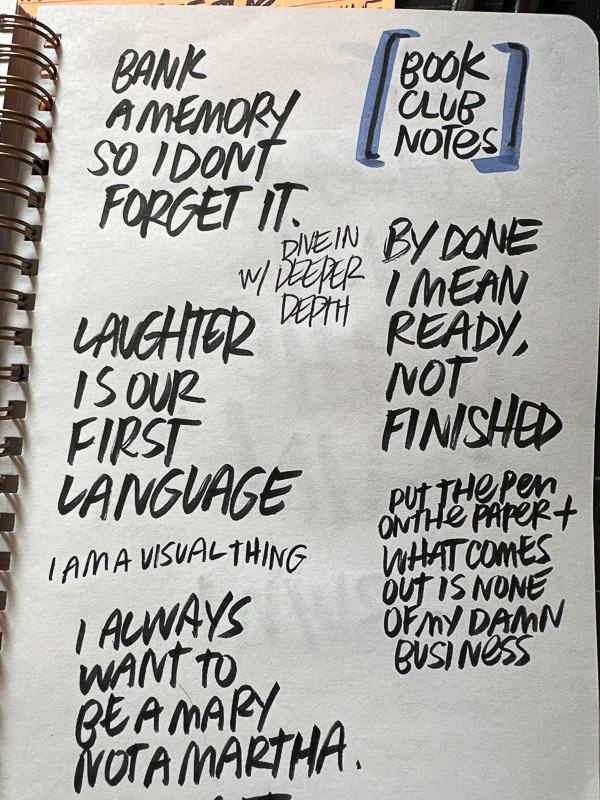 BANK
A MEMORY
SO I DONT
FORGET IT.
[BOOK
CLUB
NOTES]
DIVE IN
W/ DEEPER
DEPTH
LAUGHTER
IS OUR
FIRST
LANGUAGE
I AM A VISUAL THING
I ALWAYS
WANT TO
BE A MARY
NOT A MARTHA.
BY DONE
I MEAN
READY,
NOT
FINISHED
PUT THE PEN
ON THE PAPER +
WHAT COMES
OUT IS NONE
OF MY DAMN
BUSINESS